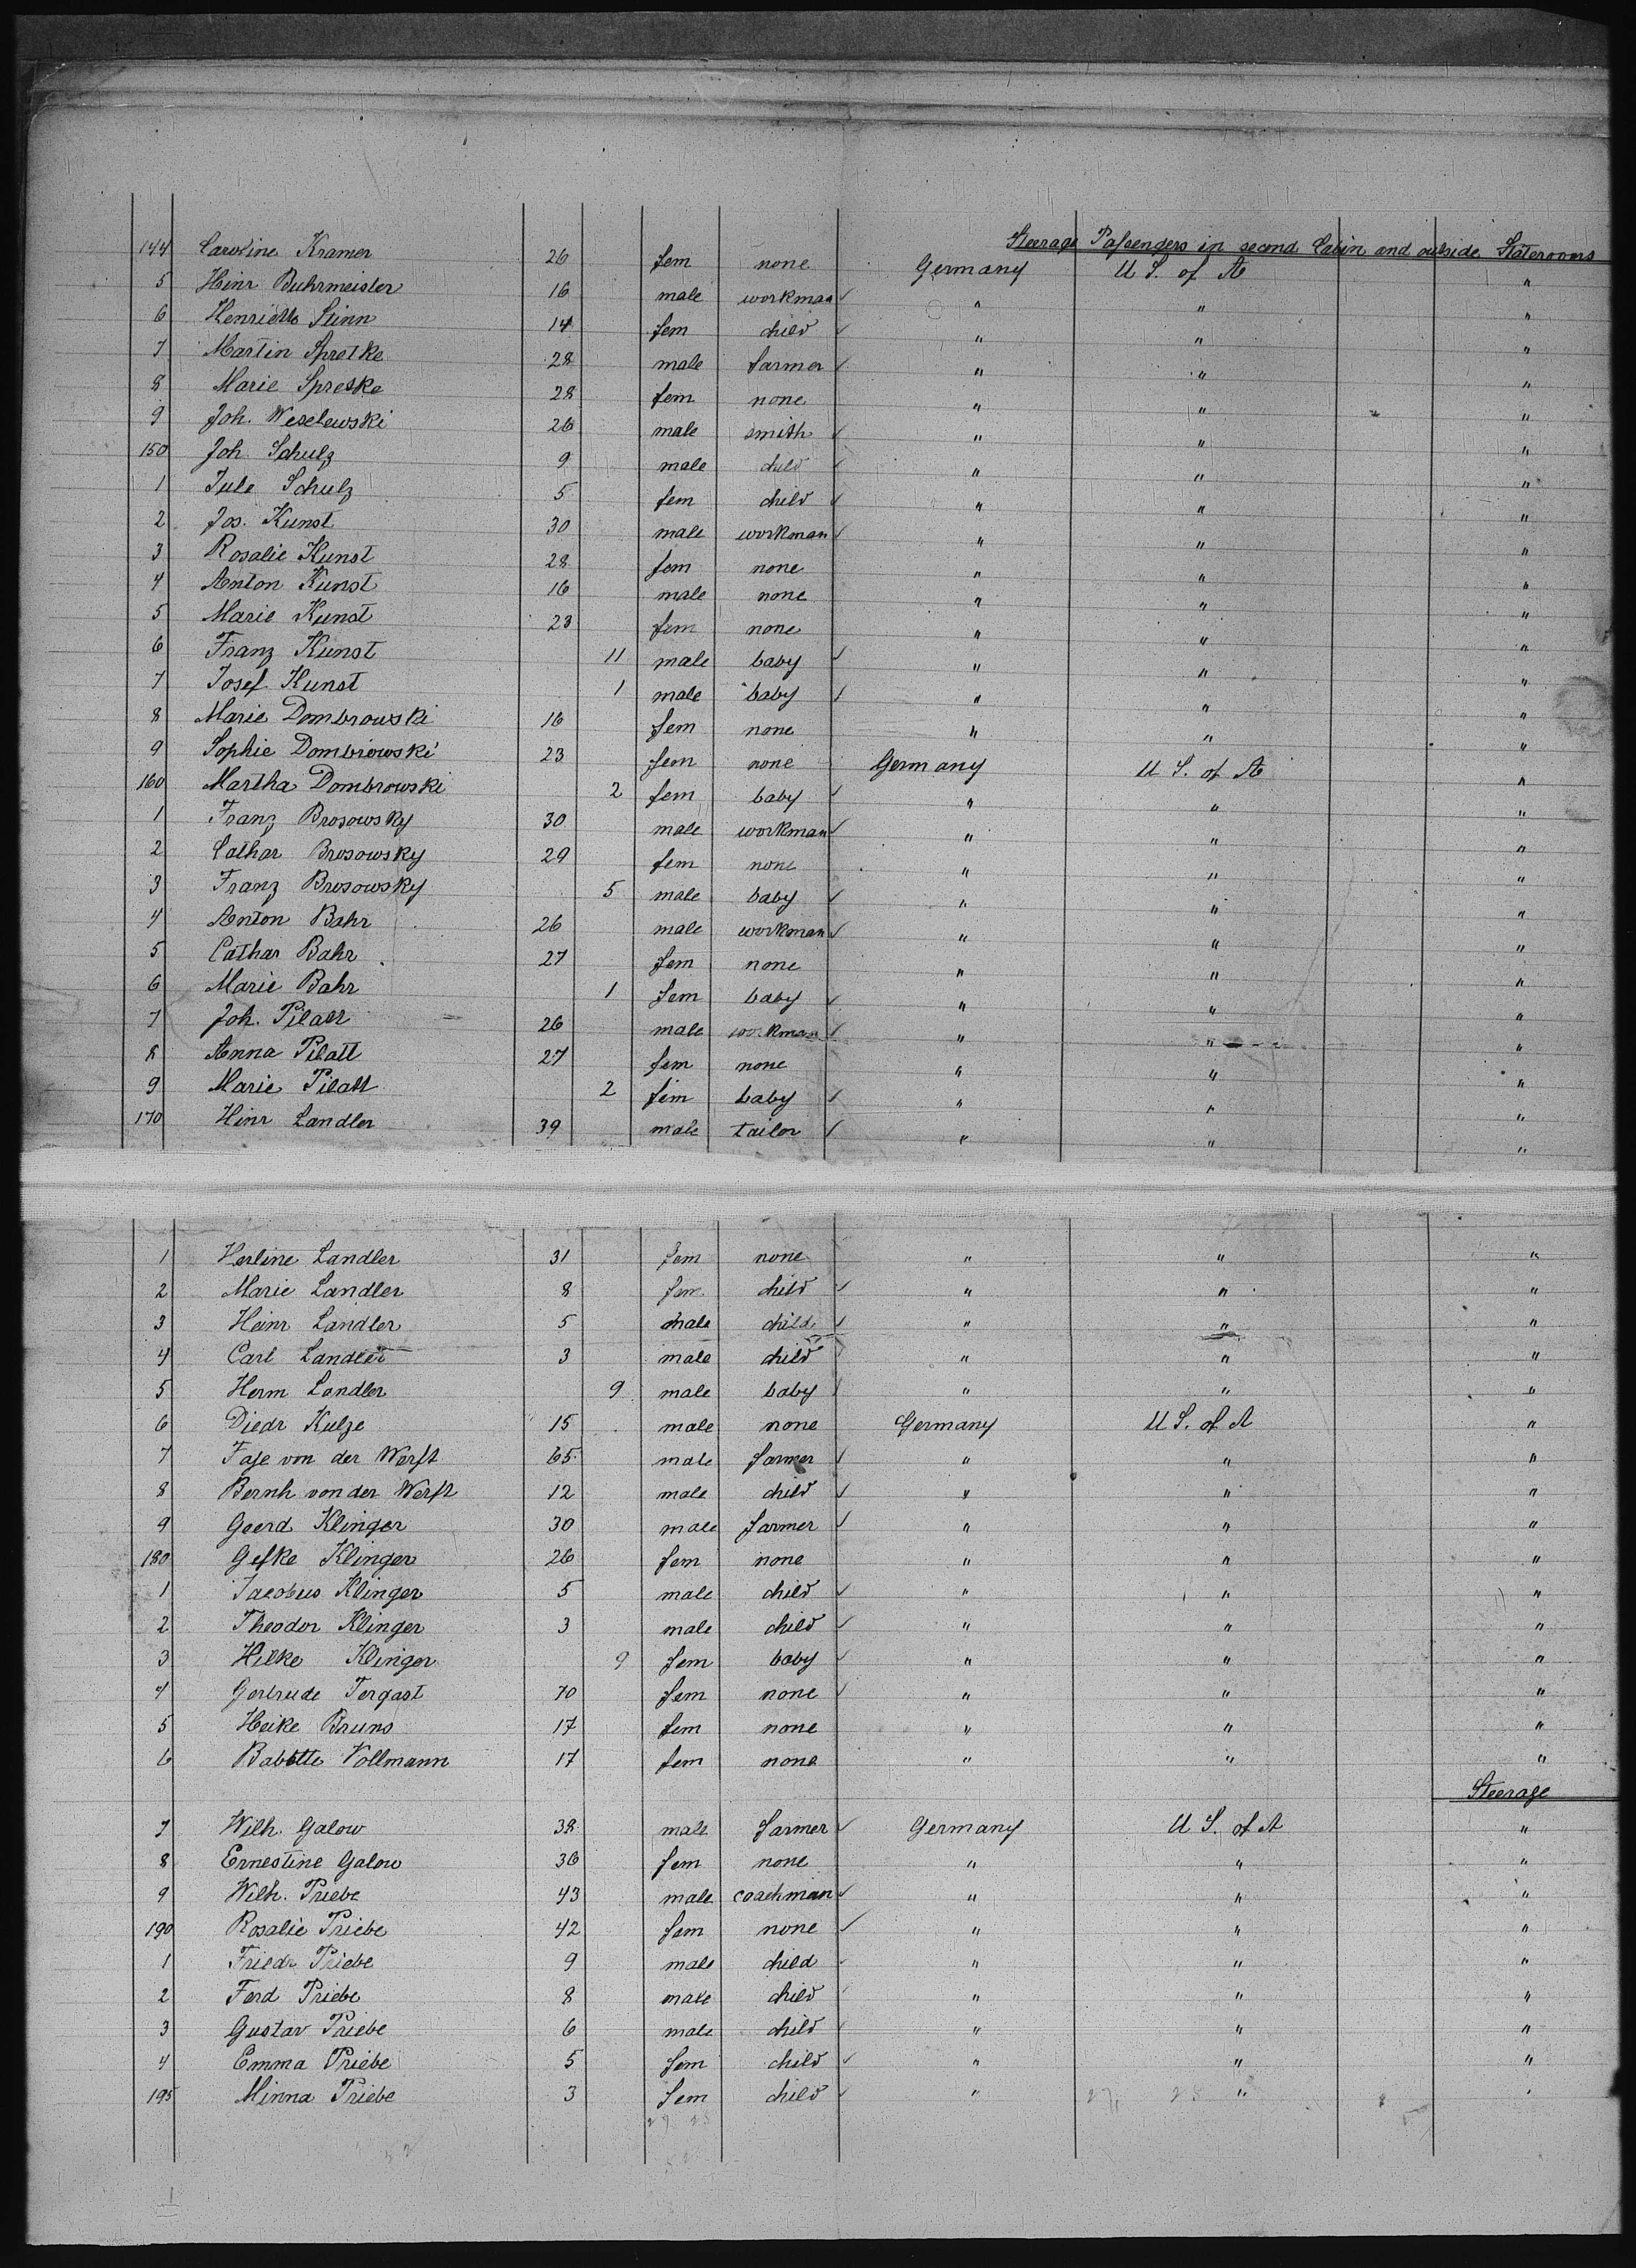 Steerage Passengers in second Cabin and outside Staterooms
144 Caroline Kramer 26 fem none Germany U S. of A "
5 Heinr Buhrmeister 16 male workman " " "
6 Henriette Stinn 14 fem child " " "
7 Martin Spretke 28 male farmer " " "
8 Marie Spretke 28 fem none " " "
9 Joh. Weselewski 26 male smith " " "
150 Joh Schulz 9 male child " " "
1 Jule Schulz 5 fem child " " "
2 Jos. Kunst 30 male workman " " "
3 Rosalie Kunst 28 fem none " " "
4 Anton Kunst 16 male none " " "
5 Marie Kunst 23 fem none " " "
6 Franz Kunst 11 male baby " " "
7 Josef Kunst 1 male baby " " "
8 Marie Dombrowski 16 fem none " " "
9 Sophie Dombrowski 23 fem none Germany U S. of A "
160 Martha Dombrowski 2 fem baby " " "
1 Franz Brosowsky 30 male workman " " "
2 Cathar Brosowsky 29 fem none " " "
3 Franz Brosowsky 5 male baby " " "
4 Anton Bahr 26 male workman " " "
5 Cathar Bahr 27 fem none " " "
6 Marie Bahr 1 fem baby " " "
7 Joh. Pilatt 26 male workman " " "
8 Anna Pilatt 27 fem none " " "
9 Marie Pilatt 2 fem baby " " "
170 Hinr Landler 39 male tailor " " "
1 Herline Landler 31 fem none " " "
2 Marie Landler 8 fem child " " "
3 Heinr Landler 5 male child " " "
4 Carl Landler 3 male child " " "
5 Herm Landler 9 male baby " " "
6 Diedr Kulze 15 male none Germany U S. of A "
7 Faje von der Werft 65 male farmer " " "
8 Bernh von der Werft 12 male child " " "
9 Geerd Klinger 30 male farmer " " "
180 Gefke Klinger 26 fem none " " "
1 Jacobus Klinger 5 male child " " "
2 Theodor Klinger 3 male child " " "
3 Hilke Klinger 9 fem baby " " "
4 Gertrude Tergast 70 fem none " " "
5 Heike Bruns 17 fem none " " "
6 Babette Vollmann 17 fem none " " "
Steerage
7 Wilh. Galow 38 male farmer Germany U S. of A "
8 Ernestine Galow 36 fem none " " "
9 Wilh. Priebe 43 male coachman " " "
190 Rosalie Priebe 42 fem none " " "
1 Friedr Priebe 9 male child " " "
2 Ferd Priebe 8 male child " " "
3 Gustav Priebe 6 male child " " "
4 Emma Priebe 5 fem child " " "
195 Minna Priebe 3 fem child " " "